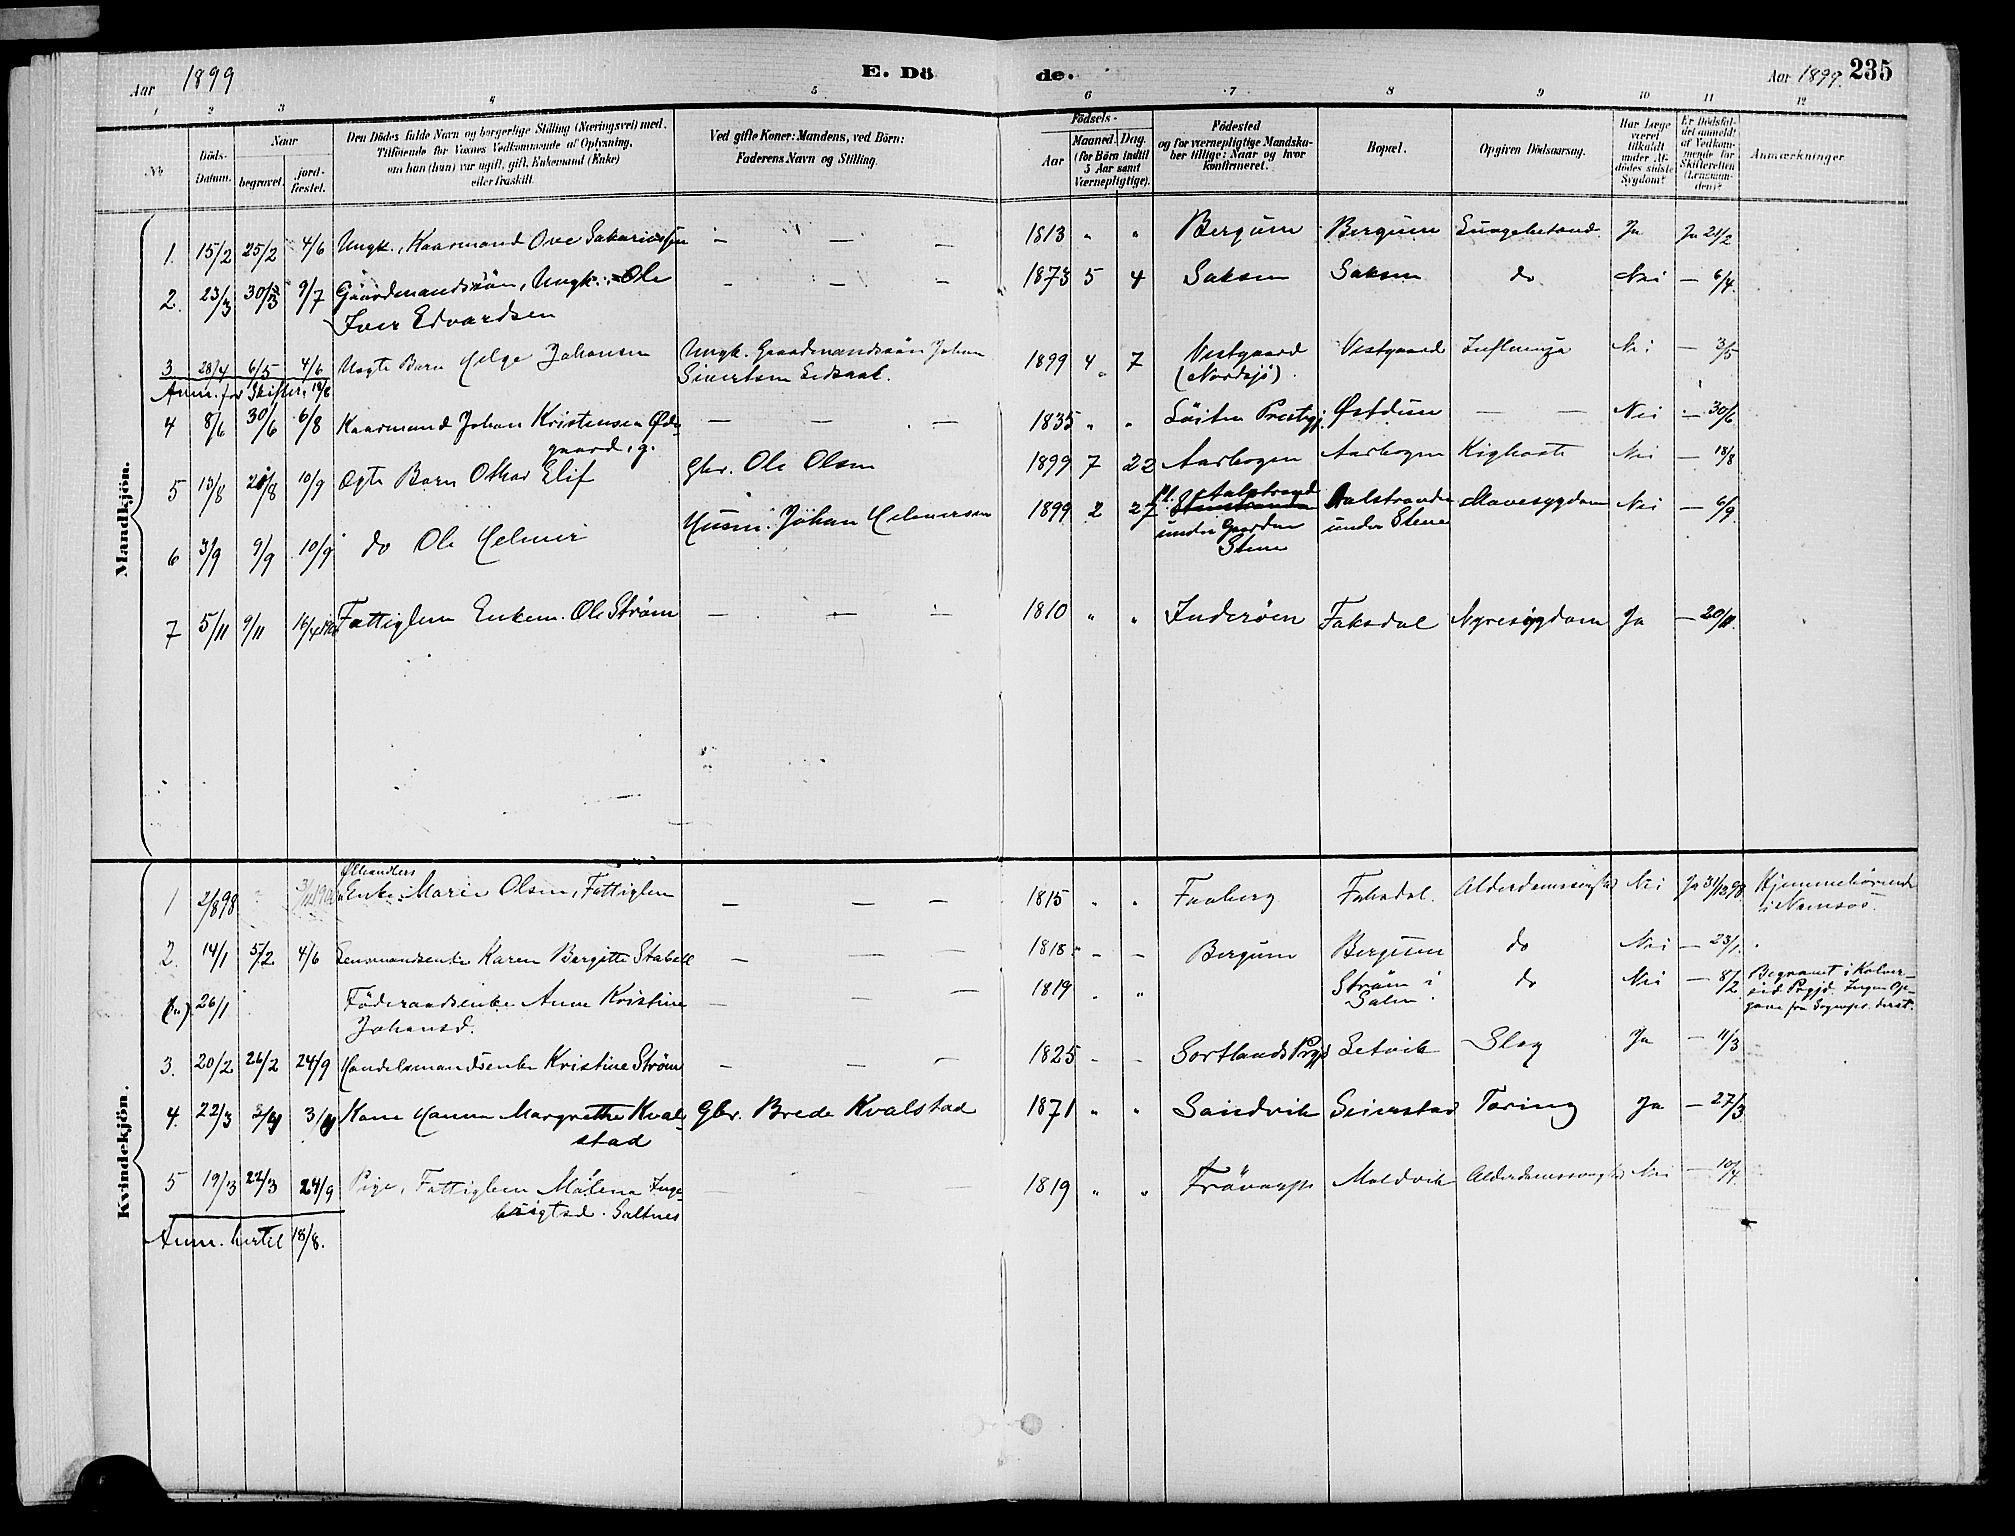 Aar 1899
E. Dö
de.
Aar 1899. 235
1 2 3 4 5 6 7 8 9 10 11 12
No
Döds-Datum.
Naar
begravet.
jord-fæstet.
Den Dödes fulde Navn og borgerlige Stilling (Næringsvei) med
Tilföiende for Voxnes Vedkommende af Oplysning,
om han (hun) var ugift, gift, Enkemand (Enke)
eller fraskilt.
Ved gifte Koner: Mandens, ved Börn:
Faderens Navn og Stilling.
Födsels-
Aar
Maaned. Dag.
(for Börn indtil
5 Aar samt
Værnepligtige).
Födested
og for værnepligtige Mandska-
ber tillige: Naar og hvor
konfirmeret.
Bopæl.
Opgiven Dödsaarsag.
Har Læge
været
tilkaldt
under Af-
dödes sidste
Sygdom?
Er Dödsfal-
det anmeldt
af Vedkom-
mende for
Skifteretten
(Lensman-
den)?
Anmærkninger.
Mandkjön.
1. 15/2 25/2 4/6 Ungk., Kaarmand Ove Sakariassen — — — 1813 " " Bergum Bergum Lungebetænd. Ja Ja 21/2
2. 23/3 30/3 9/7 Gaardmandssön, Ungk. Ole — — — 1873 5 4 Saksen Saksen do Nei — 6/4
Iver Edvardsen
3. 28/4 6/5 4/6 Uægte Barn Helge Johansen Ungk. Gaardmandssön Johan 1899 4 7 Vestgaard Vestgaard Influenza Nei — 3/5
Sivertsen (Nordsjö).
Anm. for Skifter. 18/6
4 8/6 30/6 6/8 Kaarmand Johan Kristensen Öde- — — — 1835 " " Löiten Prestgj. Östduun — — Nei — 30/6
gaard, g.
5 13/8 20/8 10/9 Ægte Barn Othar Elif Gbr. Ole Olsen 1899 7 22 Aarbogen Aarbogen Kighoste Nei — 18/8
6 3/9 9/9 10/9 do Ole Helmer Husm. Johan Helmersen 1899 2 27 Pl. Aalstrand Aalstranden Mavesygdom Nei — 6/9
under Gaarden under Stene
Stene
7 5/11 9/11 Fattiglem Enkem. Ole Ström — — — 1810 " " Inderöen Faksdal Nyresygdom Ja — 20/11.
Kvindekjön.
Ölhandlers
1 2/8 98 Enke Marie Olsen, Fattiglem — — — 1815 " " Faaberg Faksdal. Alderdomssvaghed Nei Ja 31/12 98 Hjemmehörende
i Namsos.
2. 14/1 5/2 4/6 Lensmandsenke Karen Birgitte Stabell — — — 1818 — — Bergum Bergum do Nei — 23/1
26/1 Föderaadsenke Anne Kristine — — — 1819 " " Ström i do Nei — 8/2 Begravet i Kolver-
Johansd. Salen. eid Prgjd. Ingen Op-
gave fra Sogneps. derst.
3. 20/2 26/2 24/9 Handelsmandsenke Kristine Ström — — — 1825 — — Sortlands Prgj. Setvik Slag Ja — 11/3
4. 22/3 3/4 3/4 Kone Hanna Margrethe Kval- Gbr. Brede Kvalstad 1871 " " Sandvik Seierstad Tæring Ja — 27/3
stad
5 19/3 24/9 Pige, Fattiglem Målena Inge- — — — 1819 " " Moldvik Alderdomssvaghed Nei — 10/4
brigtsd. Saltnes
Anm. hertil 18/8.